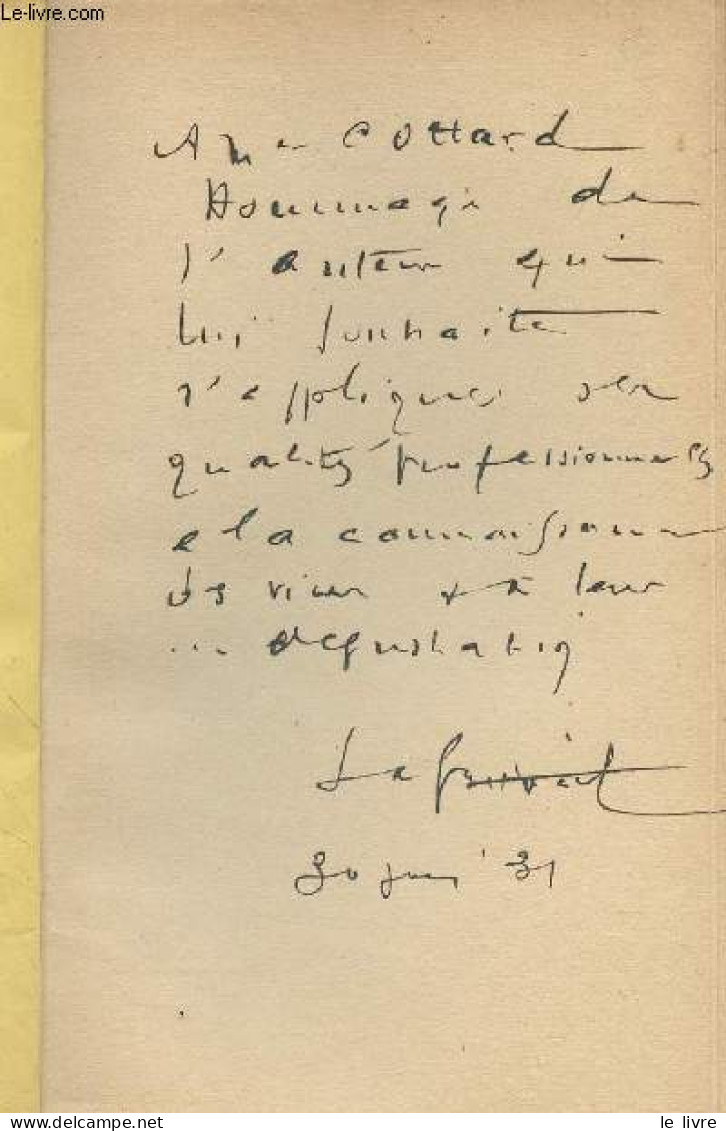 Le-livre.com
A Mr Cottard
Hommage de
l'auteur qui
lui souhaite
d'appliquer ses
qualités professionnelles
a la connaissance
des vins et à leur
... dégustation
30 juin 31
le livre